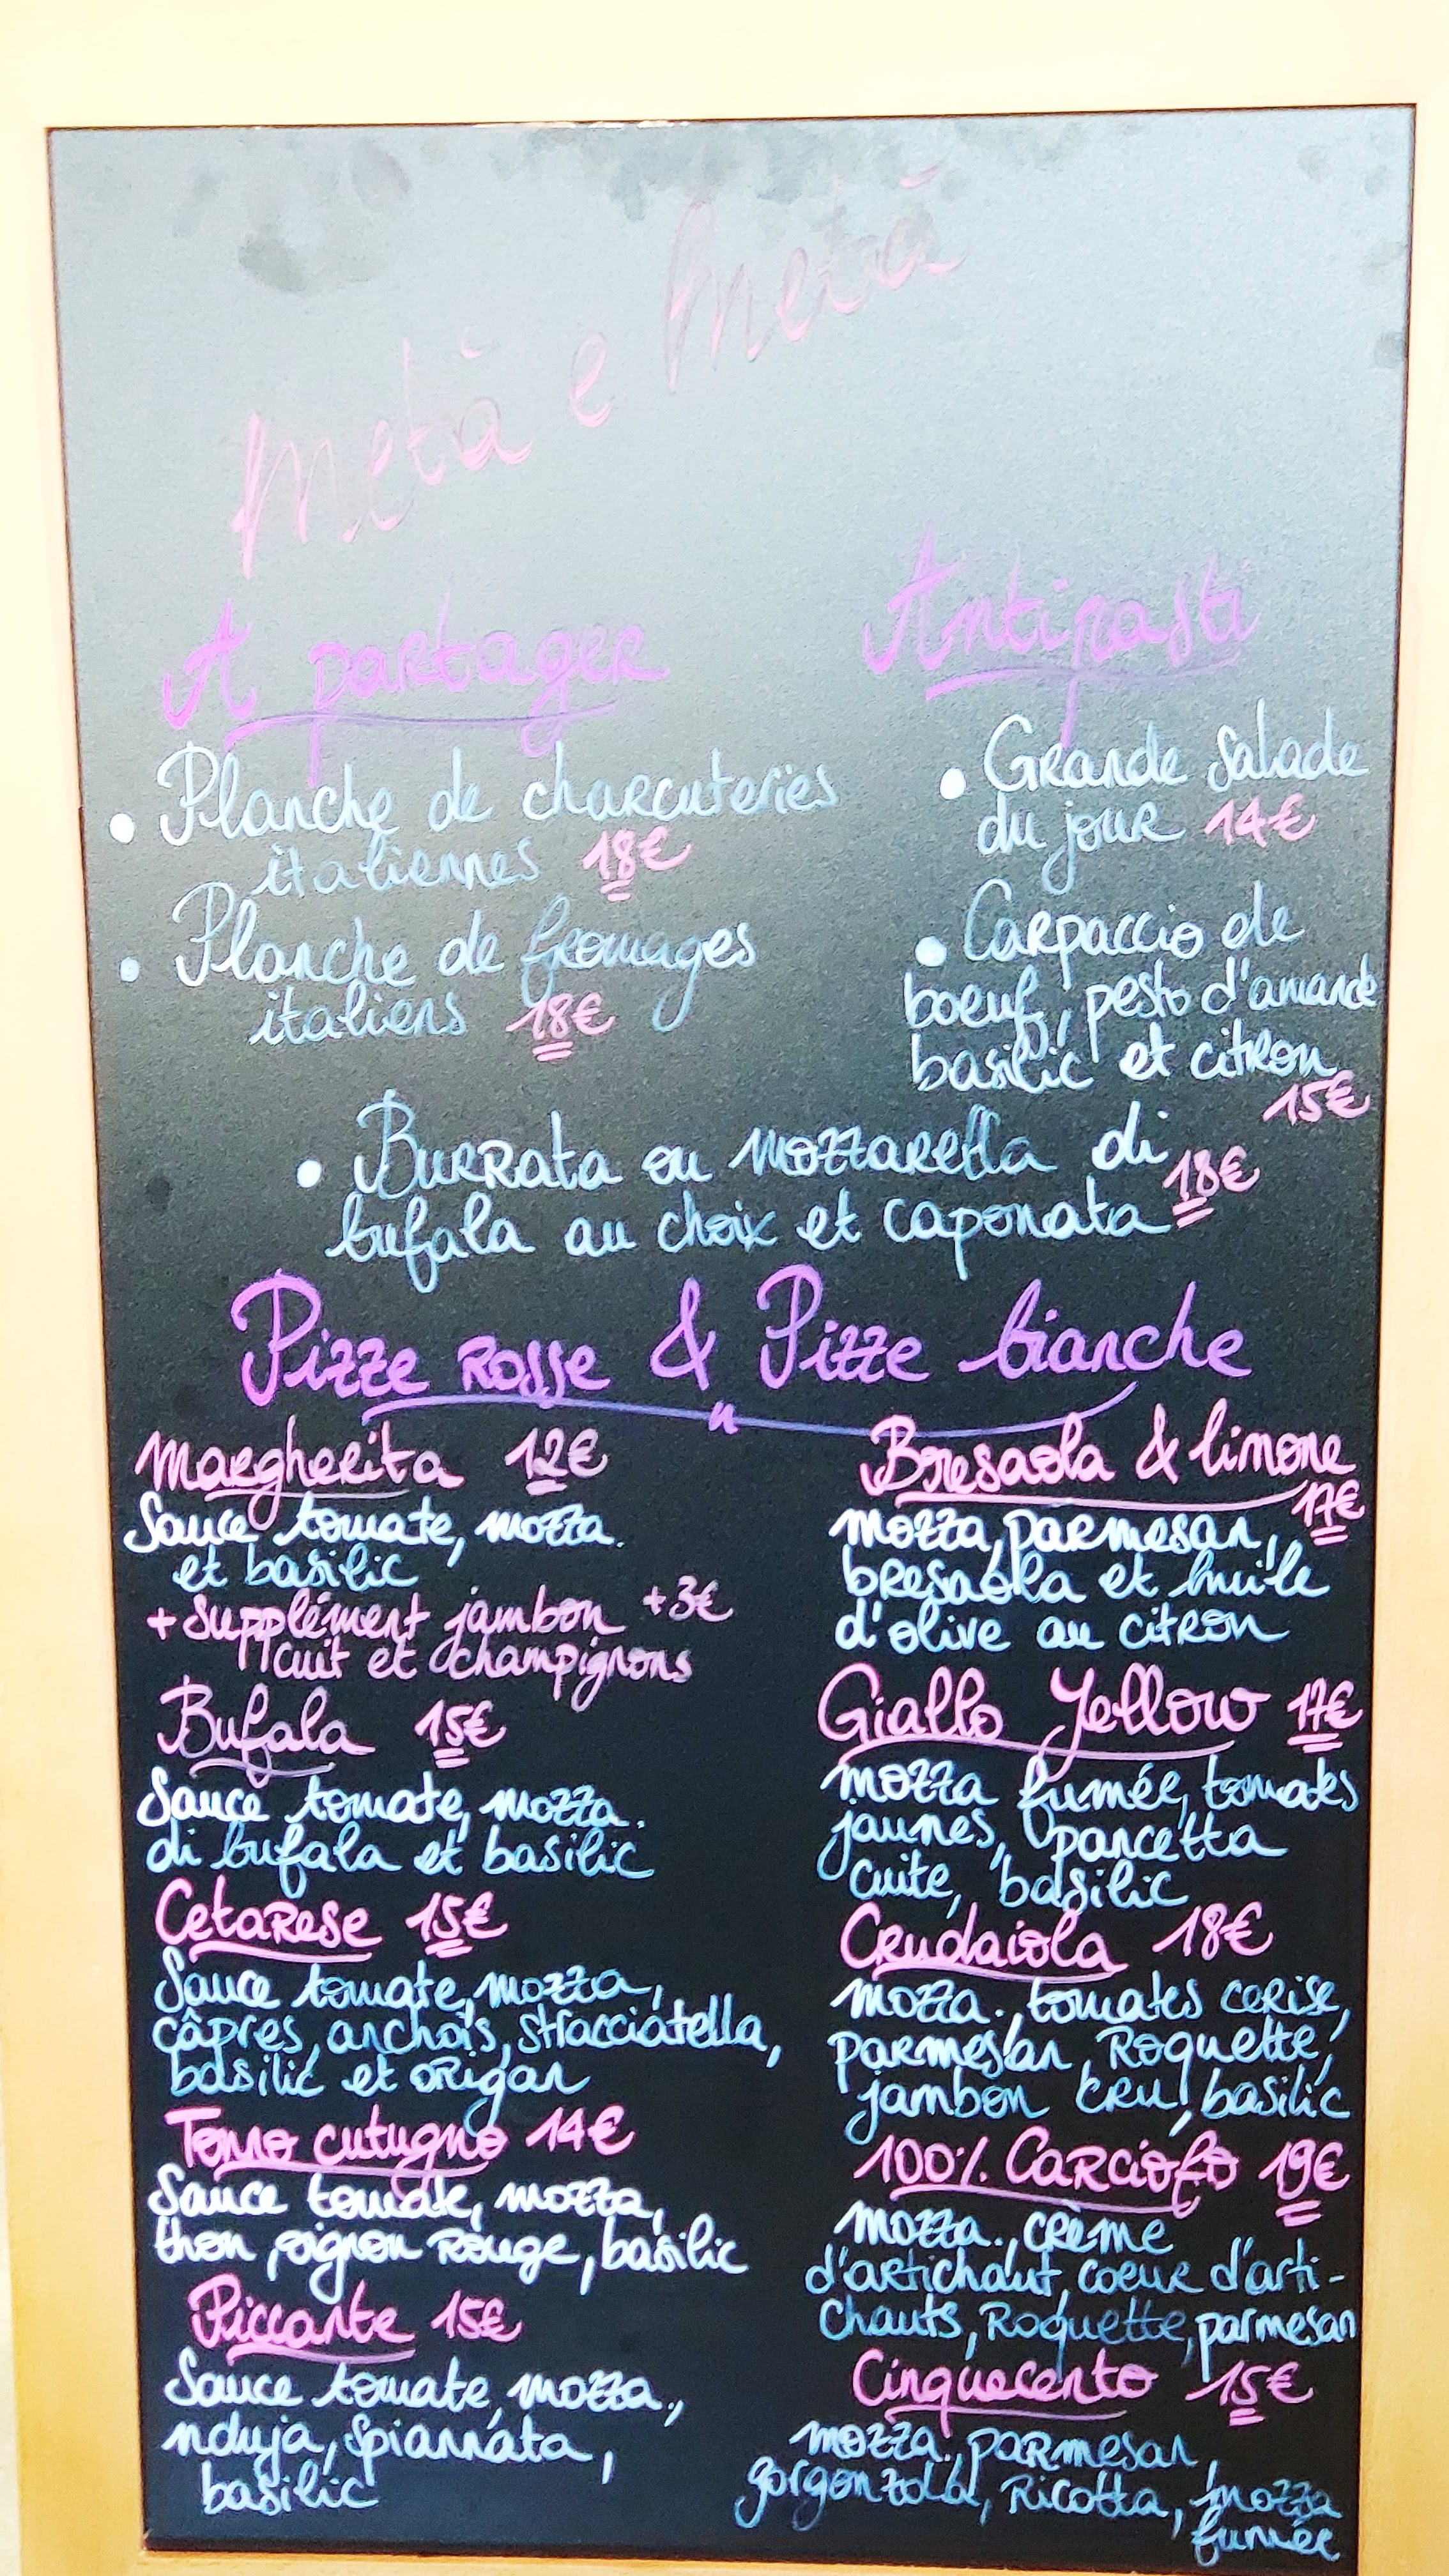 Metà e Metà
A partager
• Planche de charcuteries
italiennes 18€
• Planche de fromages
italiens 18€
Antipasti
• Grande Salade
du jour 14€
• Carpaccio de
boeuf, pesto d'amande
basilic et citron
15€
• Burrata ou mozzarella di
bufala au choix et caponata 18€
Pizze Rosse & Pizze bianche
Margherita 12€
Sauce tomate, mozza.
et basilic
+ Supplément jambon +3€
cuit et champignons
Bufala 15€
Sauce tomate, mozza.
di bufala et basilic
Cetarese 15€
Sauce tomate, mozza,
câpres, anchois, stracciatella,
basilic et origan
Tonno cutugno 14€
Sauce tomate, mozza,
thon, oignon rouge, basilic
Piccante 15€
Sauce tomate, mozza.,
nduja, Spiannata,
basilic
Bresaola & limone
17€
mozza, parmesan,
bresaola et huile
d'olive au citron
Giallo Yellow 17€
mozza fumée, tomates
jaunes, pancetta
cuite, basilic
Crudaiola 18€
mozza., tomates cerise,
parmesan, Roquette,
jambon cru, basilic
100% Carciofo 19€
mozza., crème
d'artichaut, coeur d'arti-
chauts, Roquette, parmesan
Cinquecento 15€
mozza., parmesan,
gorgonzola, Ricotta, mozza
fumée